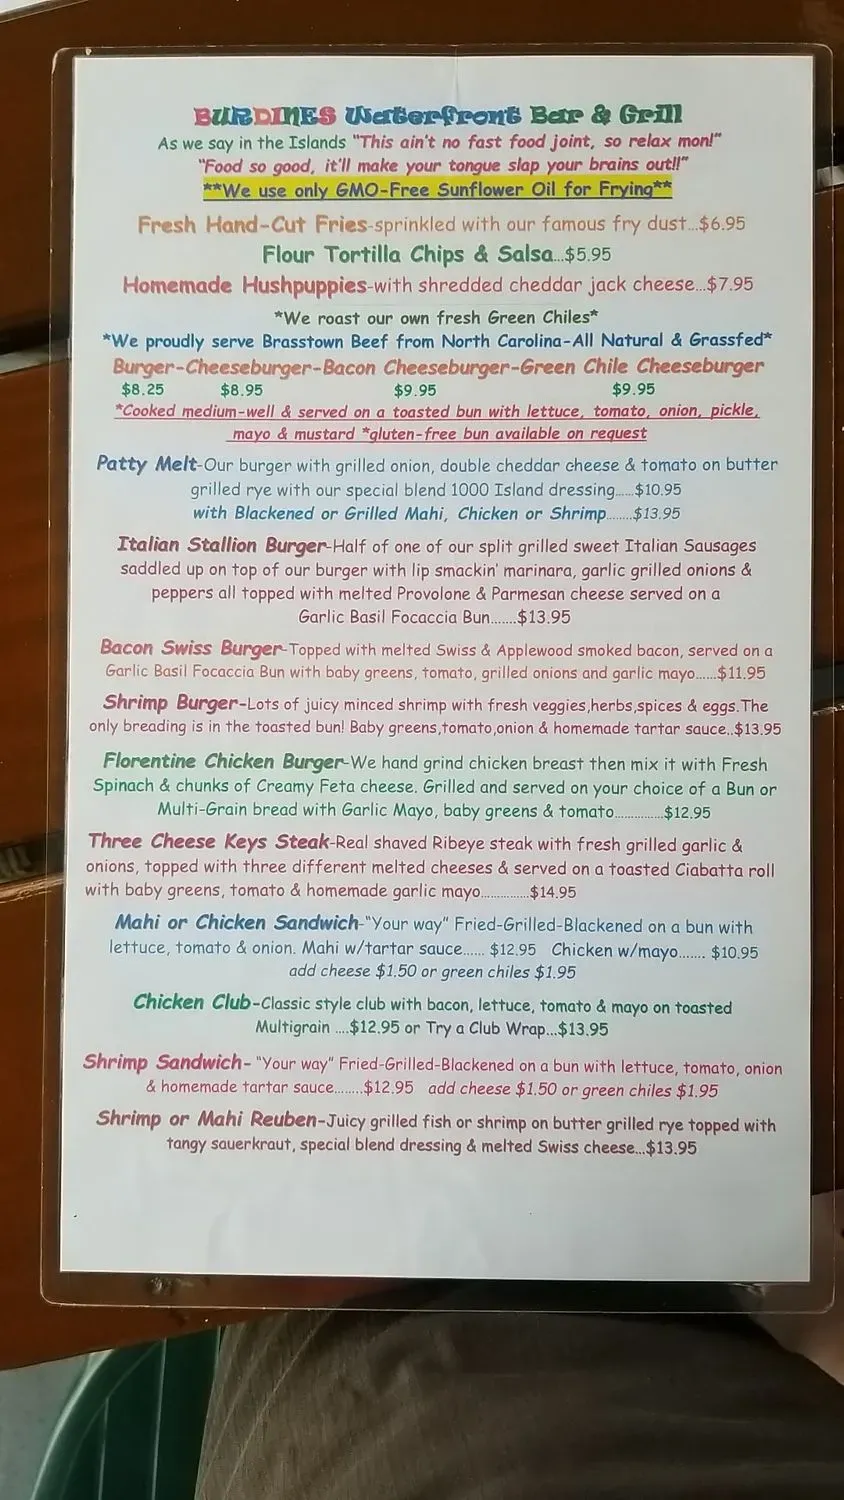 BURDINES Waterfront Bar & Grill
As we say in the Islands "This ain't no fast food joint, so relax mon!"
"Food so good, it'll make your tongue slap your brains out!!"
**We use only GMO-Free Sunflower Oil for Frying**
Fresh Hand-Cut Fries-sprinkled with our famous fry dust...$6.95
Flour Tortilla Chips & Salsa...$5.95
Homemade Hushpuppies-with shredded cheddar jack cheese...$7.95
*We roast our own fresh Green Chiles*
*We proudly serve Brasstown Beef from North Carolina-All Natural & Grassfed*
Burger-Cheeseburger-Bacon Cheeseburger-Green Chile Cheeseburger
$8.25 $8.95 $9.95 $9.95
*Cooked medium-well & served on a toasted bun with lettuce, tomato, onion, pickle,
mayo & mustard *gluten-free bun available on request
Patty Melt-Our burger with grilled onion, double cheddar cheese & tomato on butter
grilled rye with our special blend 1000 Island dressing......$10.95
with Blackened or Grilled Mahi, Chicken or Shrimp........$13.95
Italian Stallion Burger-Half of one of our split grilled sweet Italian Sausages
saddled up on top of our burger with lip smackin' marinara, garlic grilled onions &
peppers all topped with melted Provolone & Parmesan cheese served on a
Garlic Basil Focaccia Bun.......$13.95
Bacon Swiss Burger-Topped with melted Swiss & Applewood smoked bacon, served on a
Garlic Basil Focaccia Bun with baby greens, tomato, grilled onions and garlic mayo......$11.95
Shrimp Burger-Lots of juicy minced shrimp with fresh veggies,herbs,spices & eggs.The
only breading is in the toasted bun! Baby greens,tomato,onion & homemade tartar sauce..$13.95
Florentine Chicken Burger-We hand grind chicken breast then mix it with Fresh
Spinach & chunks of Creamy Feta cheese. Grilled and served on your choice of a Bun or
Multi-Grain bread with Garlic Mayo, baby greens & tomato...............$12.95
Three Cheese Keys Steak-Real shaved Ribeye steak with fresh grilled garlic &
onions, topped with three different melted cheeses & served on a toasted Ciabatta roll
with baby greens, tomato & homemade garlic mayo...............$14.95
Mahi or Chicken Sandwich-"Your way" Fried-Grilled-Blackened on a bun with
lettuce, tomato & onion. Mahi w/tartar sauce...... $12.95 Chicken w/mayo....... $10.95
add cheese $1.50 or green chiles $1.95
Chicken Club-Classic style club with bacon, lettuce, tomato & mayo on toasted
Multigrain ....$12.95 or Try a Club Wrap...$13.95
Shrimp Sandwich- "Your way" Fried-Grilled-Blackened on a bun with lettuce, tomato, onion
& homemade tartar sauce........$12.95 add cheese $1.50 or green chiles $1.95
Shrimp or Mahi Reuben-Juicy grilled fish or shrimp on butter grilled rye topped with
tangy sauerkraut, special blend dressing & melted Swiss cheese...$13.95